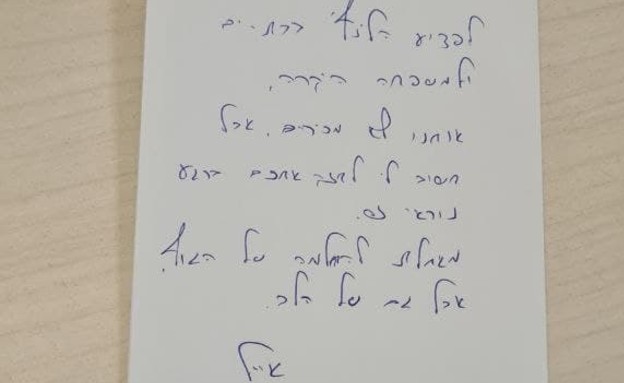 לפצוע הלוך ברת-ים
ולמשפחה היקרה,
אנחנו לא מכירים, אבל
חשוב לי לחזק אתכם ברגע
נוראי זה.
מאחלת להחלמה של הגוף,
אבל גם של הלב.
אייל